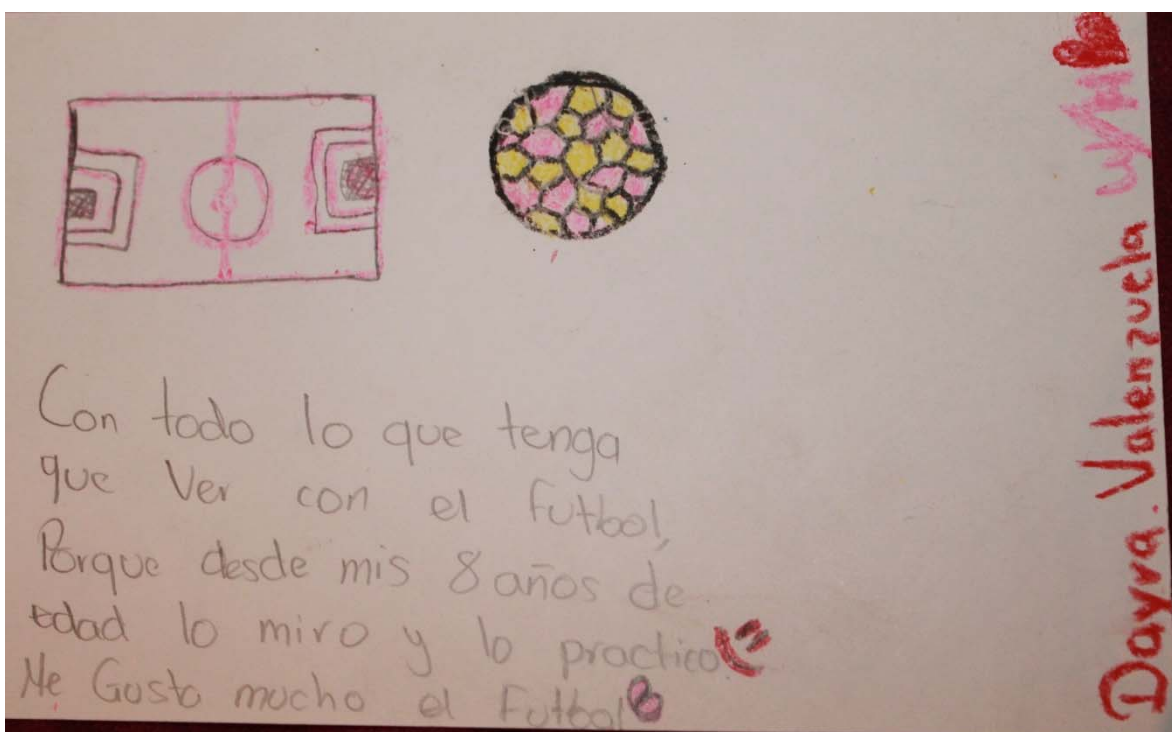 Con todo lo que tenga
que Ver con el futbol,
Porque desde mis 8 años de
edad lo miro y lo practico
Me Gusta mucho el Futbol
Dayra. Valenzuela